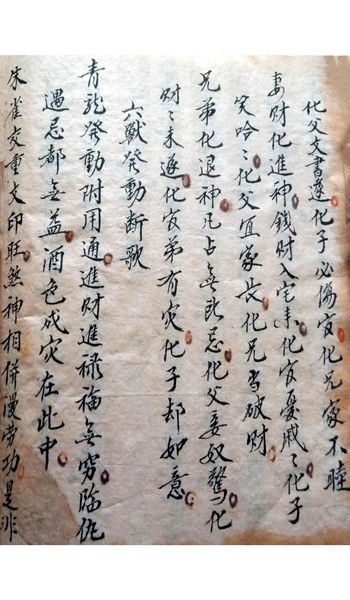 化父文書遷化子必傷官化兄家不睦
妻财化進神錢财入宅來化官憂戚〻化子
笑哈〻化父宜家長化兄当破财
兄弟化退神凡占無所忌化父妾奴驚化
财〻未遂化官弟有灾化子却如意
六獸發動断歌
青龍發動附用通進财進禄福無穷临仇
遇忌都無益酒色成灾在此中
朱雀交重文印旺煞神相併漫劳功是非